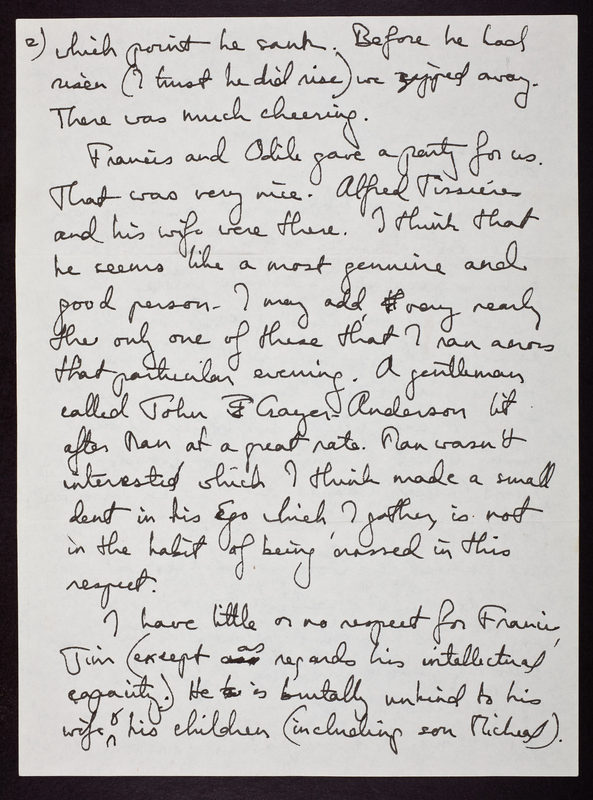 2) which point he sank. Before he had
risen (I trust he did rise) we zipped away.
There was much cheering.
Francis and Odile gave a party for us.
That was very nice. Alfred Tissières
and his wife were there. I think that
he seems like a most genuine and
good person - I may add, very nearly
the only one of these that I ran across
that particular evening. A gentleman
called John Gayer-Anderson lit
after Nan at a great rate. Nan wasn't
interested which I think made a small
dent in his Ego which, I gather, is not
in the habit of being crossed in this
respect.
I have little or no respect for Francis,
Jim (except as regards his intellectual
capacity.) He is brutally unkind to his
wife & his children (including son Micheal).